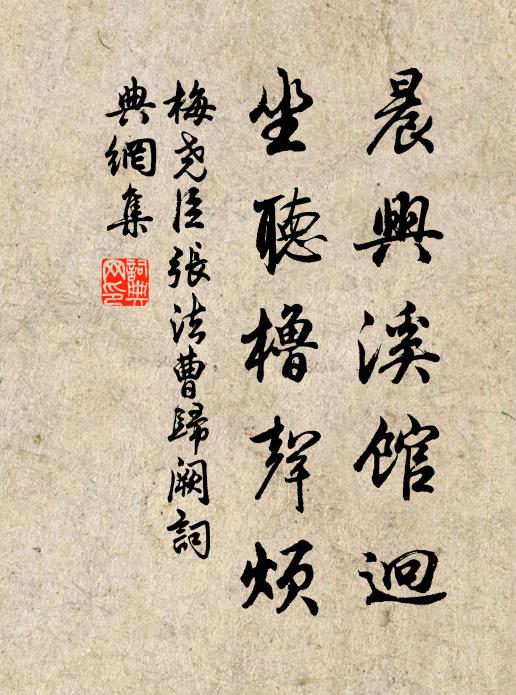 晨興溪館迥
坐聽櫓聲煩
梅堯臣張法曹歸闕詞
典網集
詞典网印